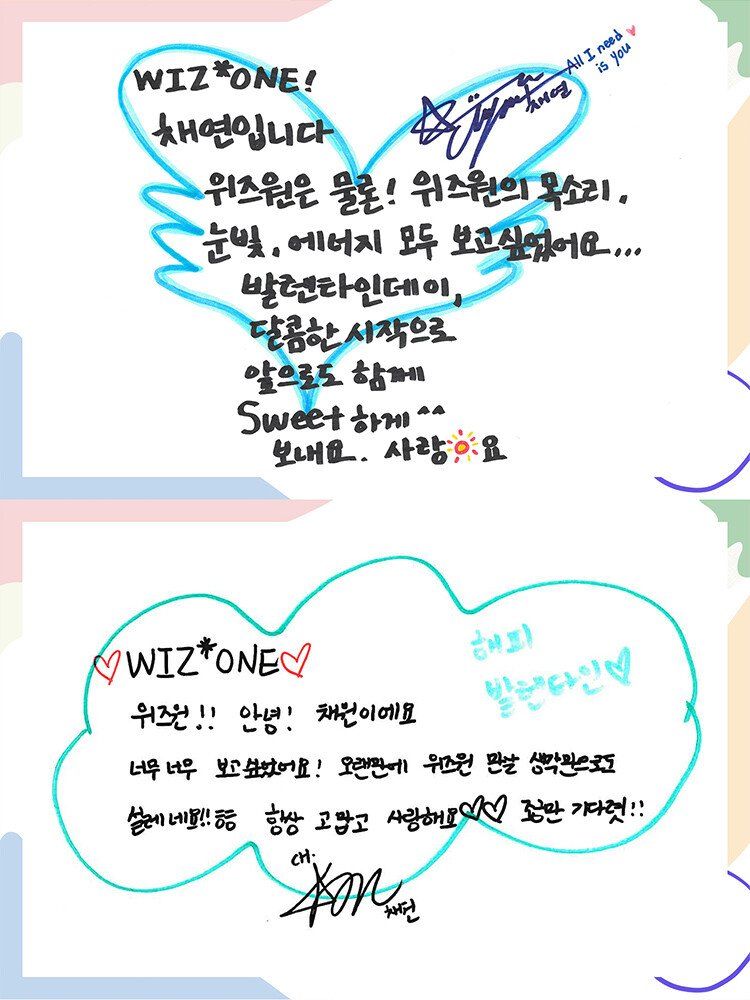 WIZ*ONE!
All I need
is you
채연
채연입니다
위즈원은 물론! 위즈원의 목소리,
눈빛, 에너지 모두 보고싶었어요...
발렌타인데이,
달콤한 시작으로
앞으로도 함께
Sweet하게^^
보내요. 사랑해요
해피
발렌타인♡
♡WIZ*ONE♡
위즈원!! 안녕! 채원이에요
너무너무 보고싶었어요! 오랜만에 위즈원 만날 생각만으로도
설레네요!! ㅠㅠ 항상 고맙고 사랑해요♡♡ 조금만 기다렷!!
채원